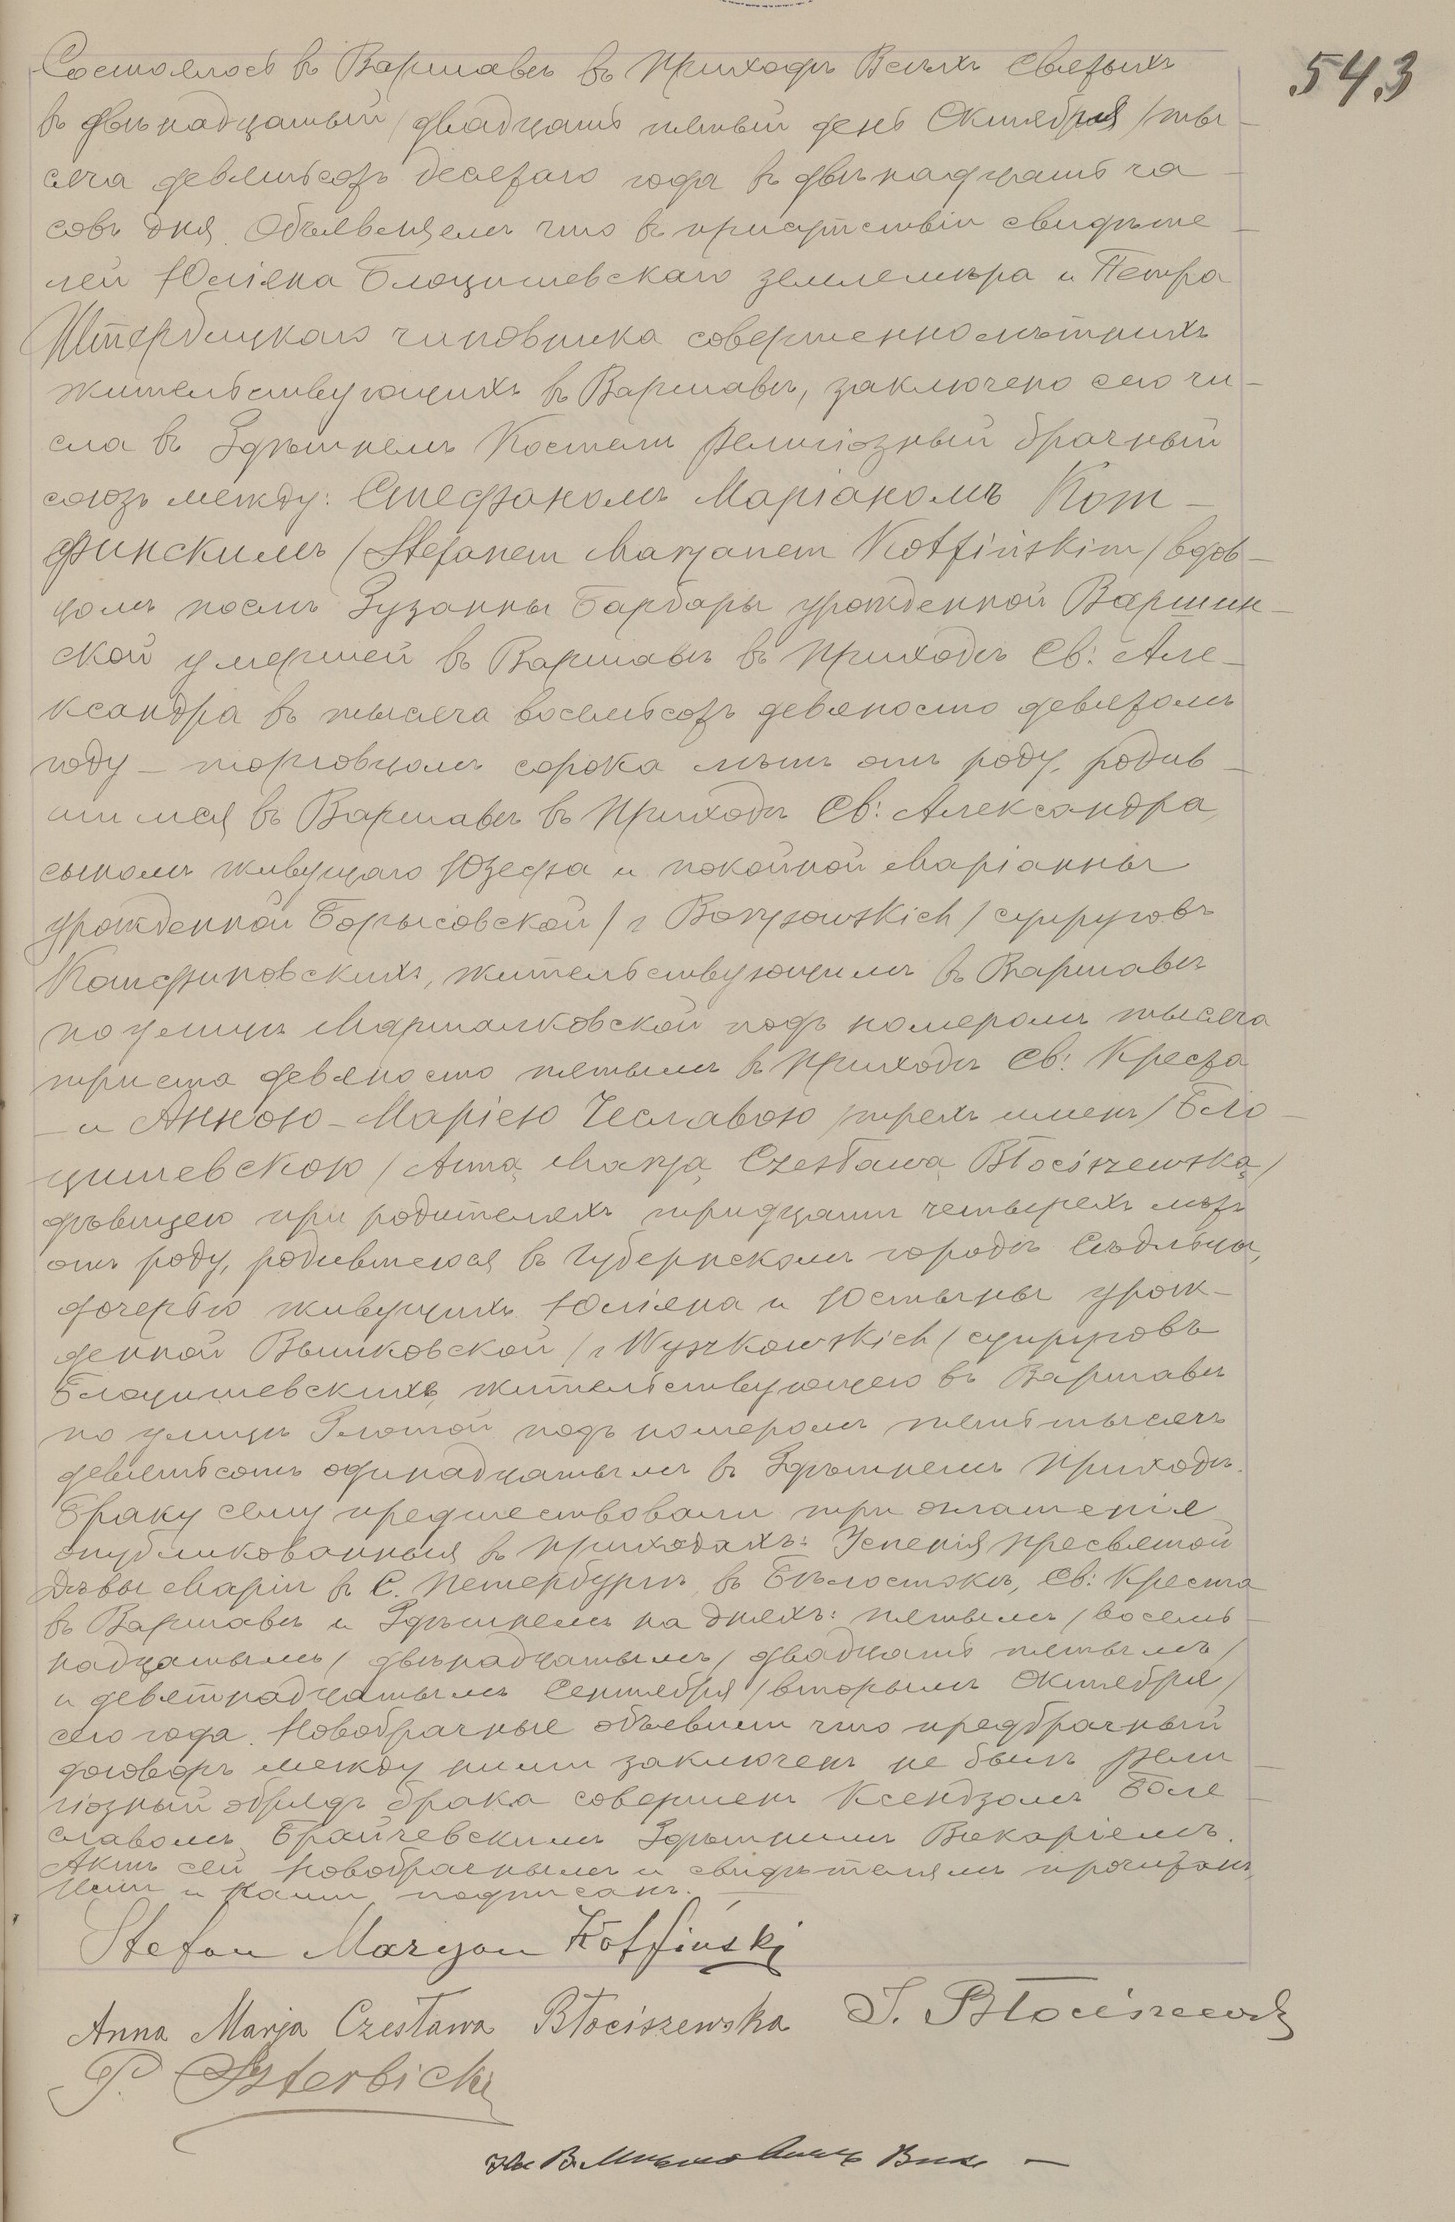 543
Состоялось въ Варшавѣ въ приходѣ Всѣхъ Святыхъ
въ двѣнадцатый / двадцать пятый день Октября / ты-
сяча девятьсотъ десятаго года въ двѣнадцать ча-
совъ дня. Объявляемъ что въ присутствіи свидѣте-
лей Юліяна Блоцишевскаго землемѣра и Петра
Штербицкаго чиновника совершеннолѣтнихъ
жительствующихъ въ Варшавѣ, заключено сего чи-
сла въ здѣшнемъ Костелѣ религіозный брачный
союзъ между: Стефаномъ Маріаномъ Кот-
финскимъ / Stefanem Maryanem Kotfińskim / вдов-
цомъ послѣ Зузанны Барбары урожденной Варшин-
ской умершей въ Варшавѣ въ приходѣ Св: Але-
ксандра въ тысяча восемьсотъ девяносто девятомъ
году – торговцомъ сорока лѣтъ отъ роду, родив-
шимся въ Варшавѣ въ приходѣ Св: Александра,
сыномъ живущаго Юзефа и покойной Маріанны
урожденной Борысовской / z Borysowskich / супруговъ
Котфиновскихъ, жительствующимъ въ Варшавѣ
по улицѣ Маршалковской подъ номеромъ тысяча
триста девяносто пятымъ въ приходѣ Св: Креста
– и Анною – Маріею Чеславою / трехъ именъ / Бло-
цишевскою / Anną Maryą Czesławą Błociszewską /
дѣвицею при родителяхъ тридцати четырехъ лѣтъ
отъ роду, родившеюся въ губернскомъ городѣ Сѣдльцы,
дочерью живущихъ Юліяна и Юстыны урож-
денной Вышковской / z Wyszkowskich / супруговъ
Блоцишевскихъ, жительствующею въ Варшавѣ
по улицѣ Злотой подъ номеромъ пять тысячъ
девятьсотъ одинадцатымъ въ здѣшнемъ приходѣ.
Браку сему предшествовали три оглашенія
опубликованныя въ приходахъ: Успенія Пресвятой
Дѣвы Маріи въ С. Петербургѣ, въ Бѣлостокѣ, Св: Креста
въ Варшавѣ и здѣшнемъ на дняхъ: пятымъ / восем-
надцатымъ / двѣнадцатымъ / двадцать пятымъ /
и девятнадцатымъ Сентября / вторымъ Октября /
сего года. Новобрачные объявили что предбрачный
договоръ между ними заключенъ не былъ. Рели-
гіозный обрядъ брака совершенъ Ксендзомъ Боле-
славомъ Брайчевскимъ здѣшнимъ Викаріемъ.
Актъ сей новобрачнымъ и свидѣтелямъ прочитанъ,
ими и нами подписанъ. –
Stefan Maryan Kotfiński
Anna Marja Czesława Błociszewska J. Błociszewski
P. Szterbicki